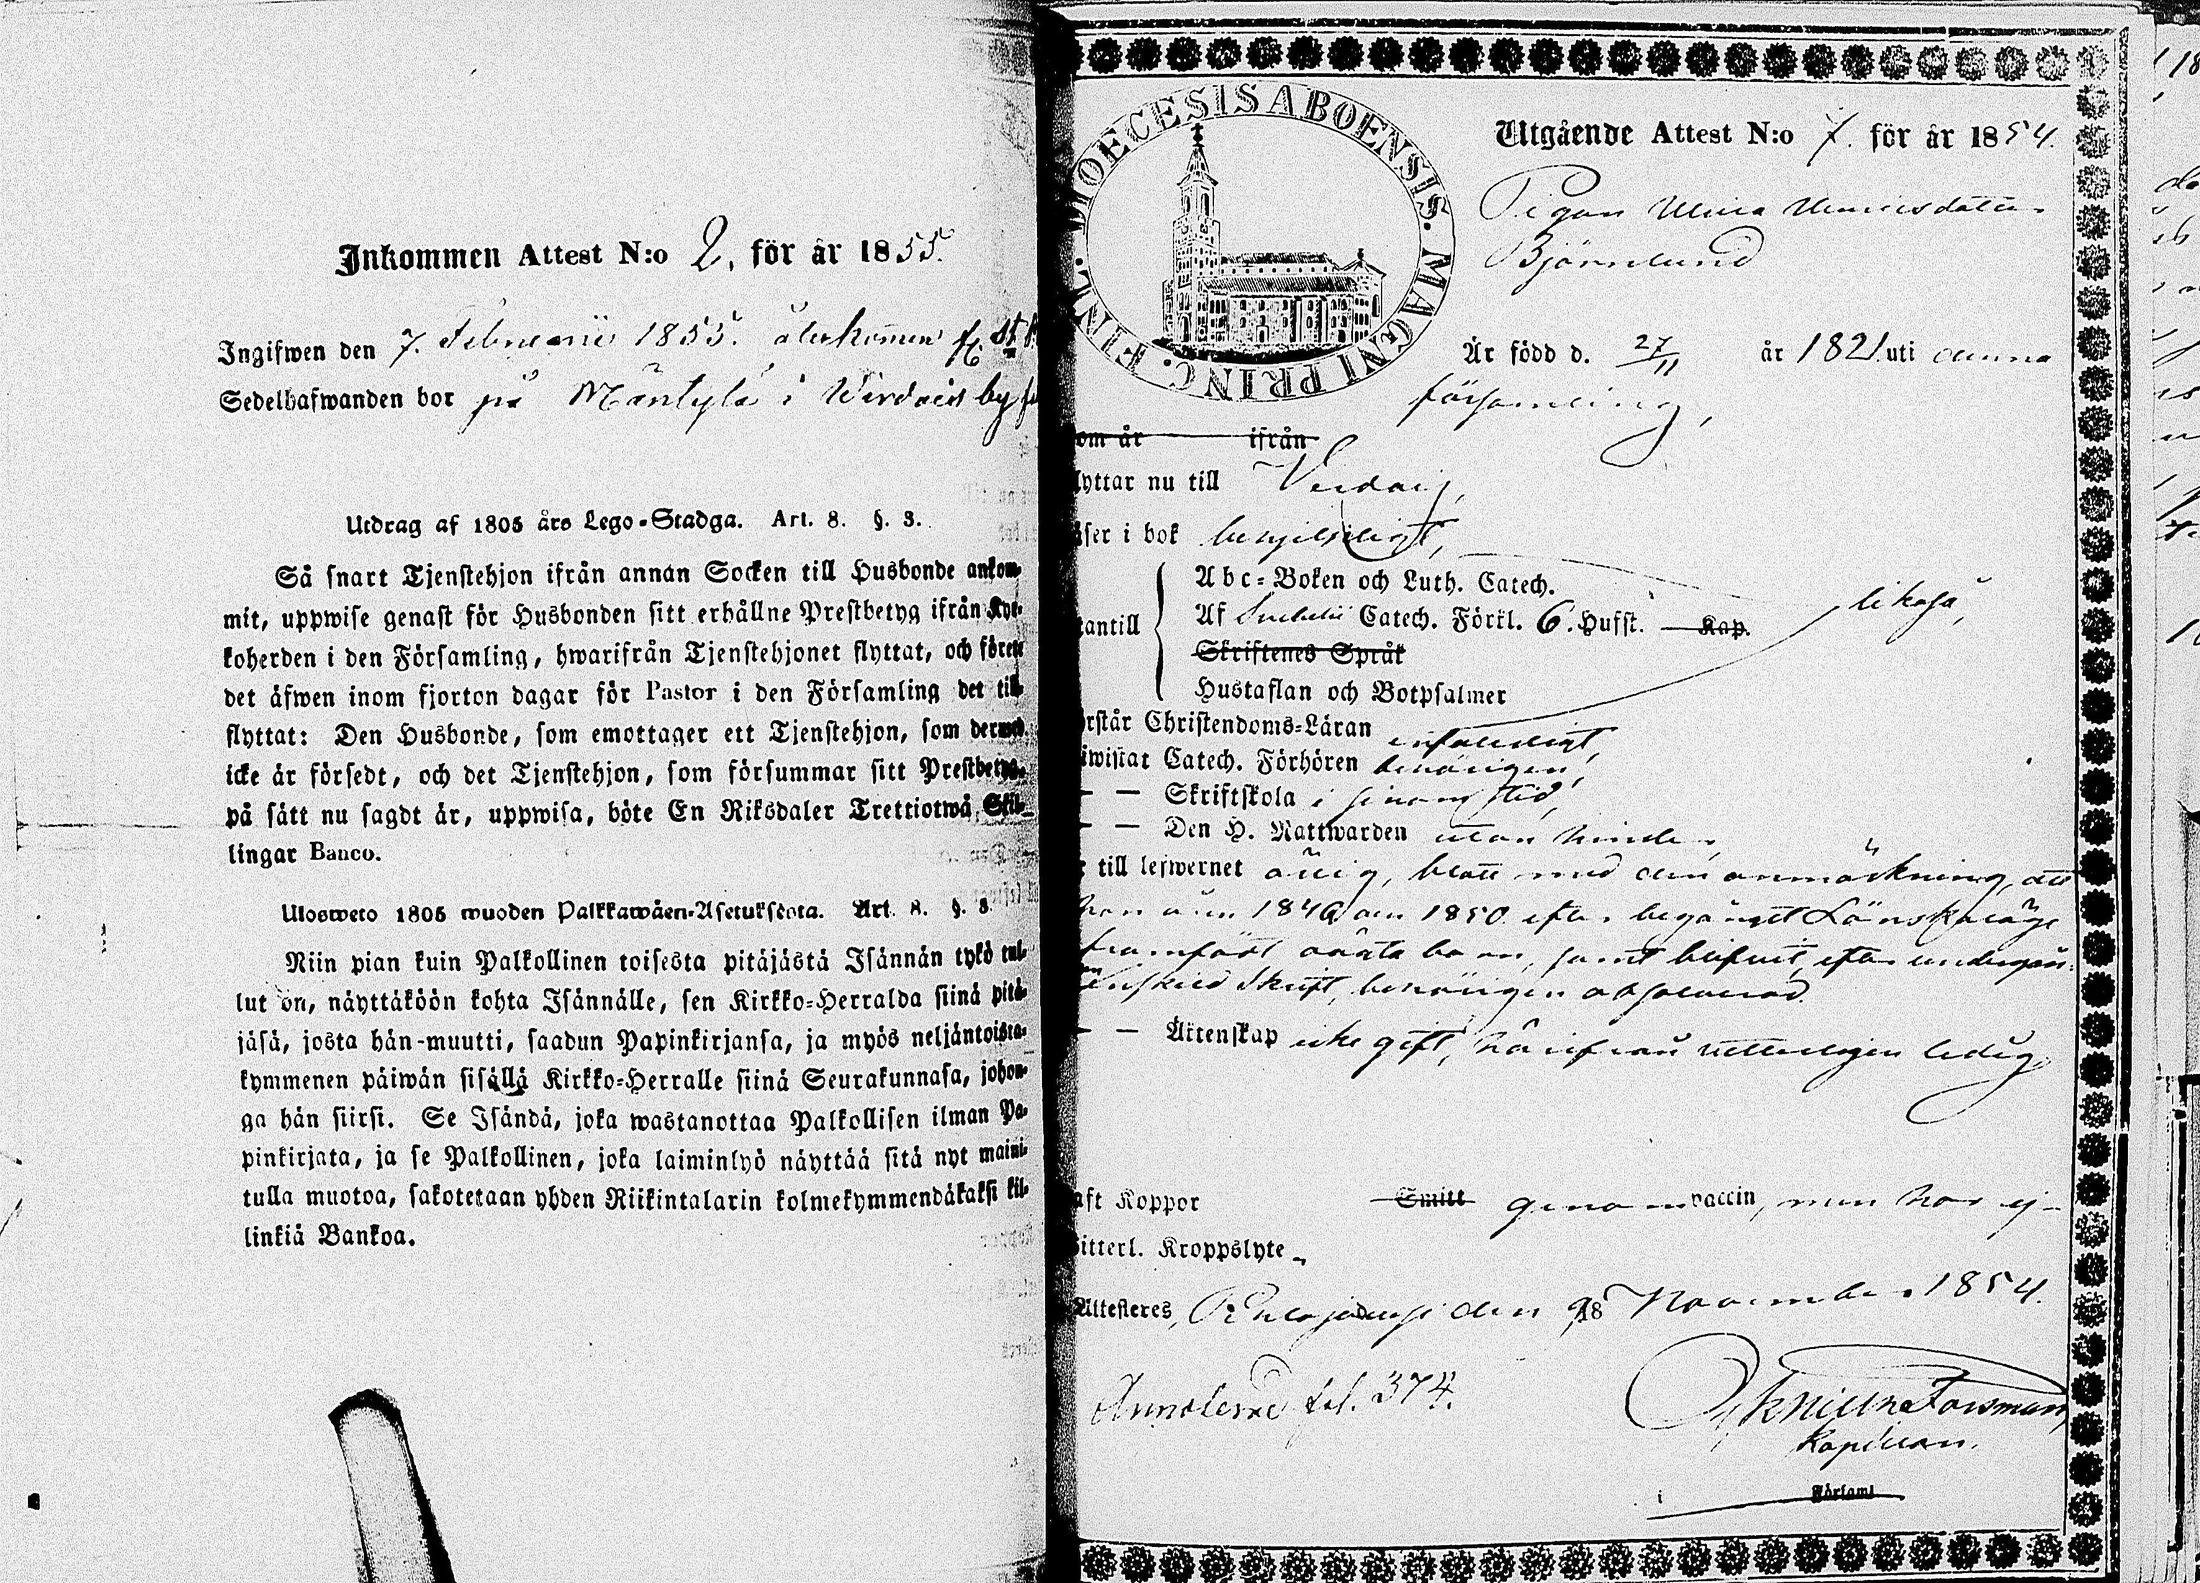 Inkommen Attest N:o 2. för år 1855.
Ingifwen den 7. Februarii 1855. återkommen fr. St
Sedelhafwanden bor på Mäntylä i Wirdois by
Utdrag af 1805 års Lego-Stadga. Art. 8. §. 3.
Så snart Tjenstehjon ifrån annan Socken till Husbonde ankom-
mit, uppwise genast för Husbonden sitt erhållne Prestbetyg ifrån Kyr-
koherden i den Församling, hwarifrån Tjenstehjonet flyttat, och förete
det äfwen inom fjorton dagar för Pastor i den Församling det till-
flyttat: Den Husbonde, som emottager ett Tjenstehjon, som dermed
icke är försedt, och det Tjenstehjon, som försummar sitt Prestbetyg,
på sätt nu sagdt är, uppwisa, böte En Riksdaler Trettiotwå Skil-
lingar Banco.
Ulosweto 1805 wuoden Palkkawäen-Asetuksesta. Art. 8. §. 3.
Niin pian kuin Palkollinen toisesta pitäjästä Isännän tykö tul-
lut on, näyttäköön kohta Isännälle, sen Kirkko-Herralda siinä pitä-
jäsä, josta hän-muutti, saadun Papinkirjansa, ja myös neljäntoista-
kymmenen päiwän sisällä Kirkko-Herralle siinä Seurakunnasa, johon-
ga hän siirsi. Se Isändä, joka wastanottaa Palkollisen ilman Pa-
pinkirjata, ja se Palkollinen, joka laiminlyö näyttää sitä nyt maini-
tulla muotoa, sakotetaan yhden Riikintalarin kolmekymmendäkaksi kil-
linkiä Bankoa.
DIOECESIS ABOENSIS. MAGNI PRINC. FINL.
Utgående Attest N:o 7. för år 1854.
Pigan Ulrica Henricsdotter
Björnlund
Är född d. 27/11 år 1821 uti denna
församling,
om år ifrån
lyttar nu till Virdois,
äser i bok
Abc-Boken och Luth. Catech.
Af Svebelii Catech. Förkl. 6. Hufst. Kap. likaså,
tantill
Skriftenes Språk
Hustaflan och Botpsalmer
rstår Christendoms-Läran enfaldigt,
iwistat Catech. Förhören behörigen,
— — Skriftskola i sinom tid,
— — Den H. Nattwarden utan hinder,
till lefwernet ärlig, blott med den anmärkning, att
hon åren 1846 och 1850 efter begånget Lönskaläge
framfödt oäkta barn, samt blifvit, efter undergån-
enskild Skrift, behörigen absolverad.
— — Äktenskap icke gift, härifrån vetterligen ledig,
aft Koppor Smitt genom vaccin, men har ej
itterl. Kroppslyte.
Attesteres, Pihlajavesi den 18 November 1854.
Annoterad fol. 374.
Forsman,
Kapellan.
i Församl.